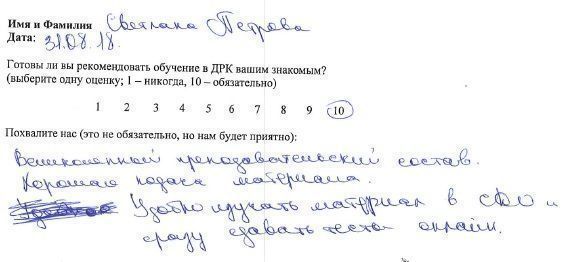 Имя и Фамилия Светлана Петрова
Дата: 31.08.18.
Готовы ли вы рекомендовать обучение в ДРК вашим знакомым?
(выберите одну оценку; 1 – никогда, 10 – обязательно)
1 2 3 4 5 6 7 8 9 10
Похвалите нас (это не обязательно, но нам будет приятно):
Великолепный преподавательский состав.
Хорошая подача материала.
Удобно изучать материал в СДО и
сразу сдавать тесты онлайн.